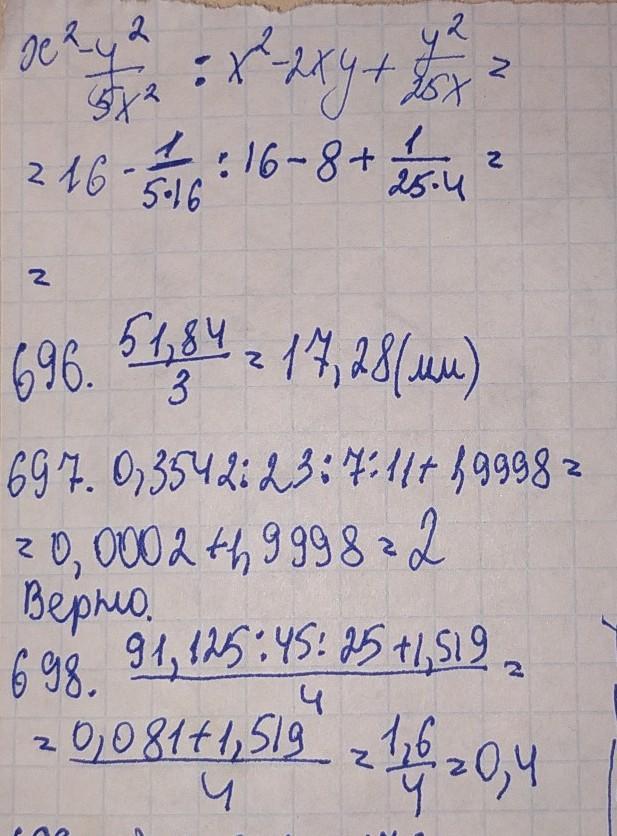 x² - y²/5x² : x² - 2xy + y²/25x =
= 16 - 1/5·16 : 16 - 8 + 1/25·4 =
=
696. 51,84/3 = 17,28 (мм)
697. 0,3542 : 23 : 7 : 11 + 1,9998 =
= 0,0002 + 1,9998 = 2
Верно.
698. 91,125 : 45 : 25 + 1,519/4 =
= 0,081 + 1,519/4 = 1,6/4 = 0,4